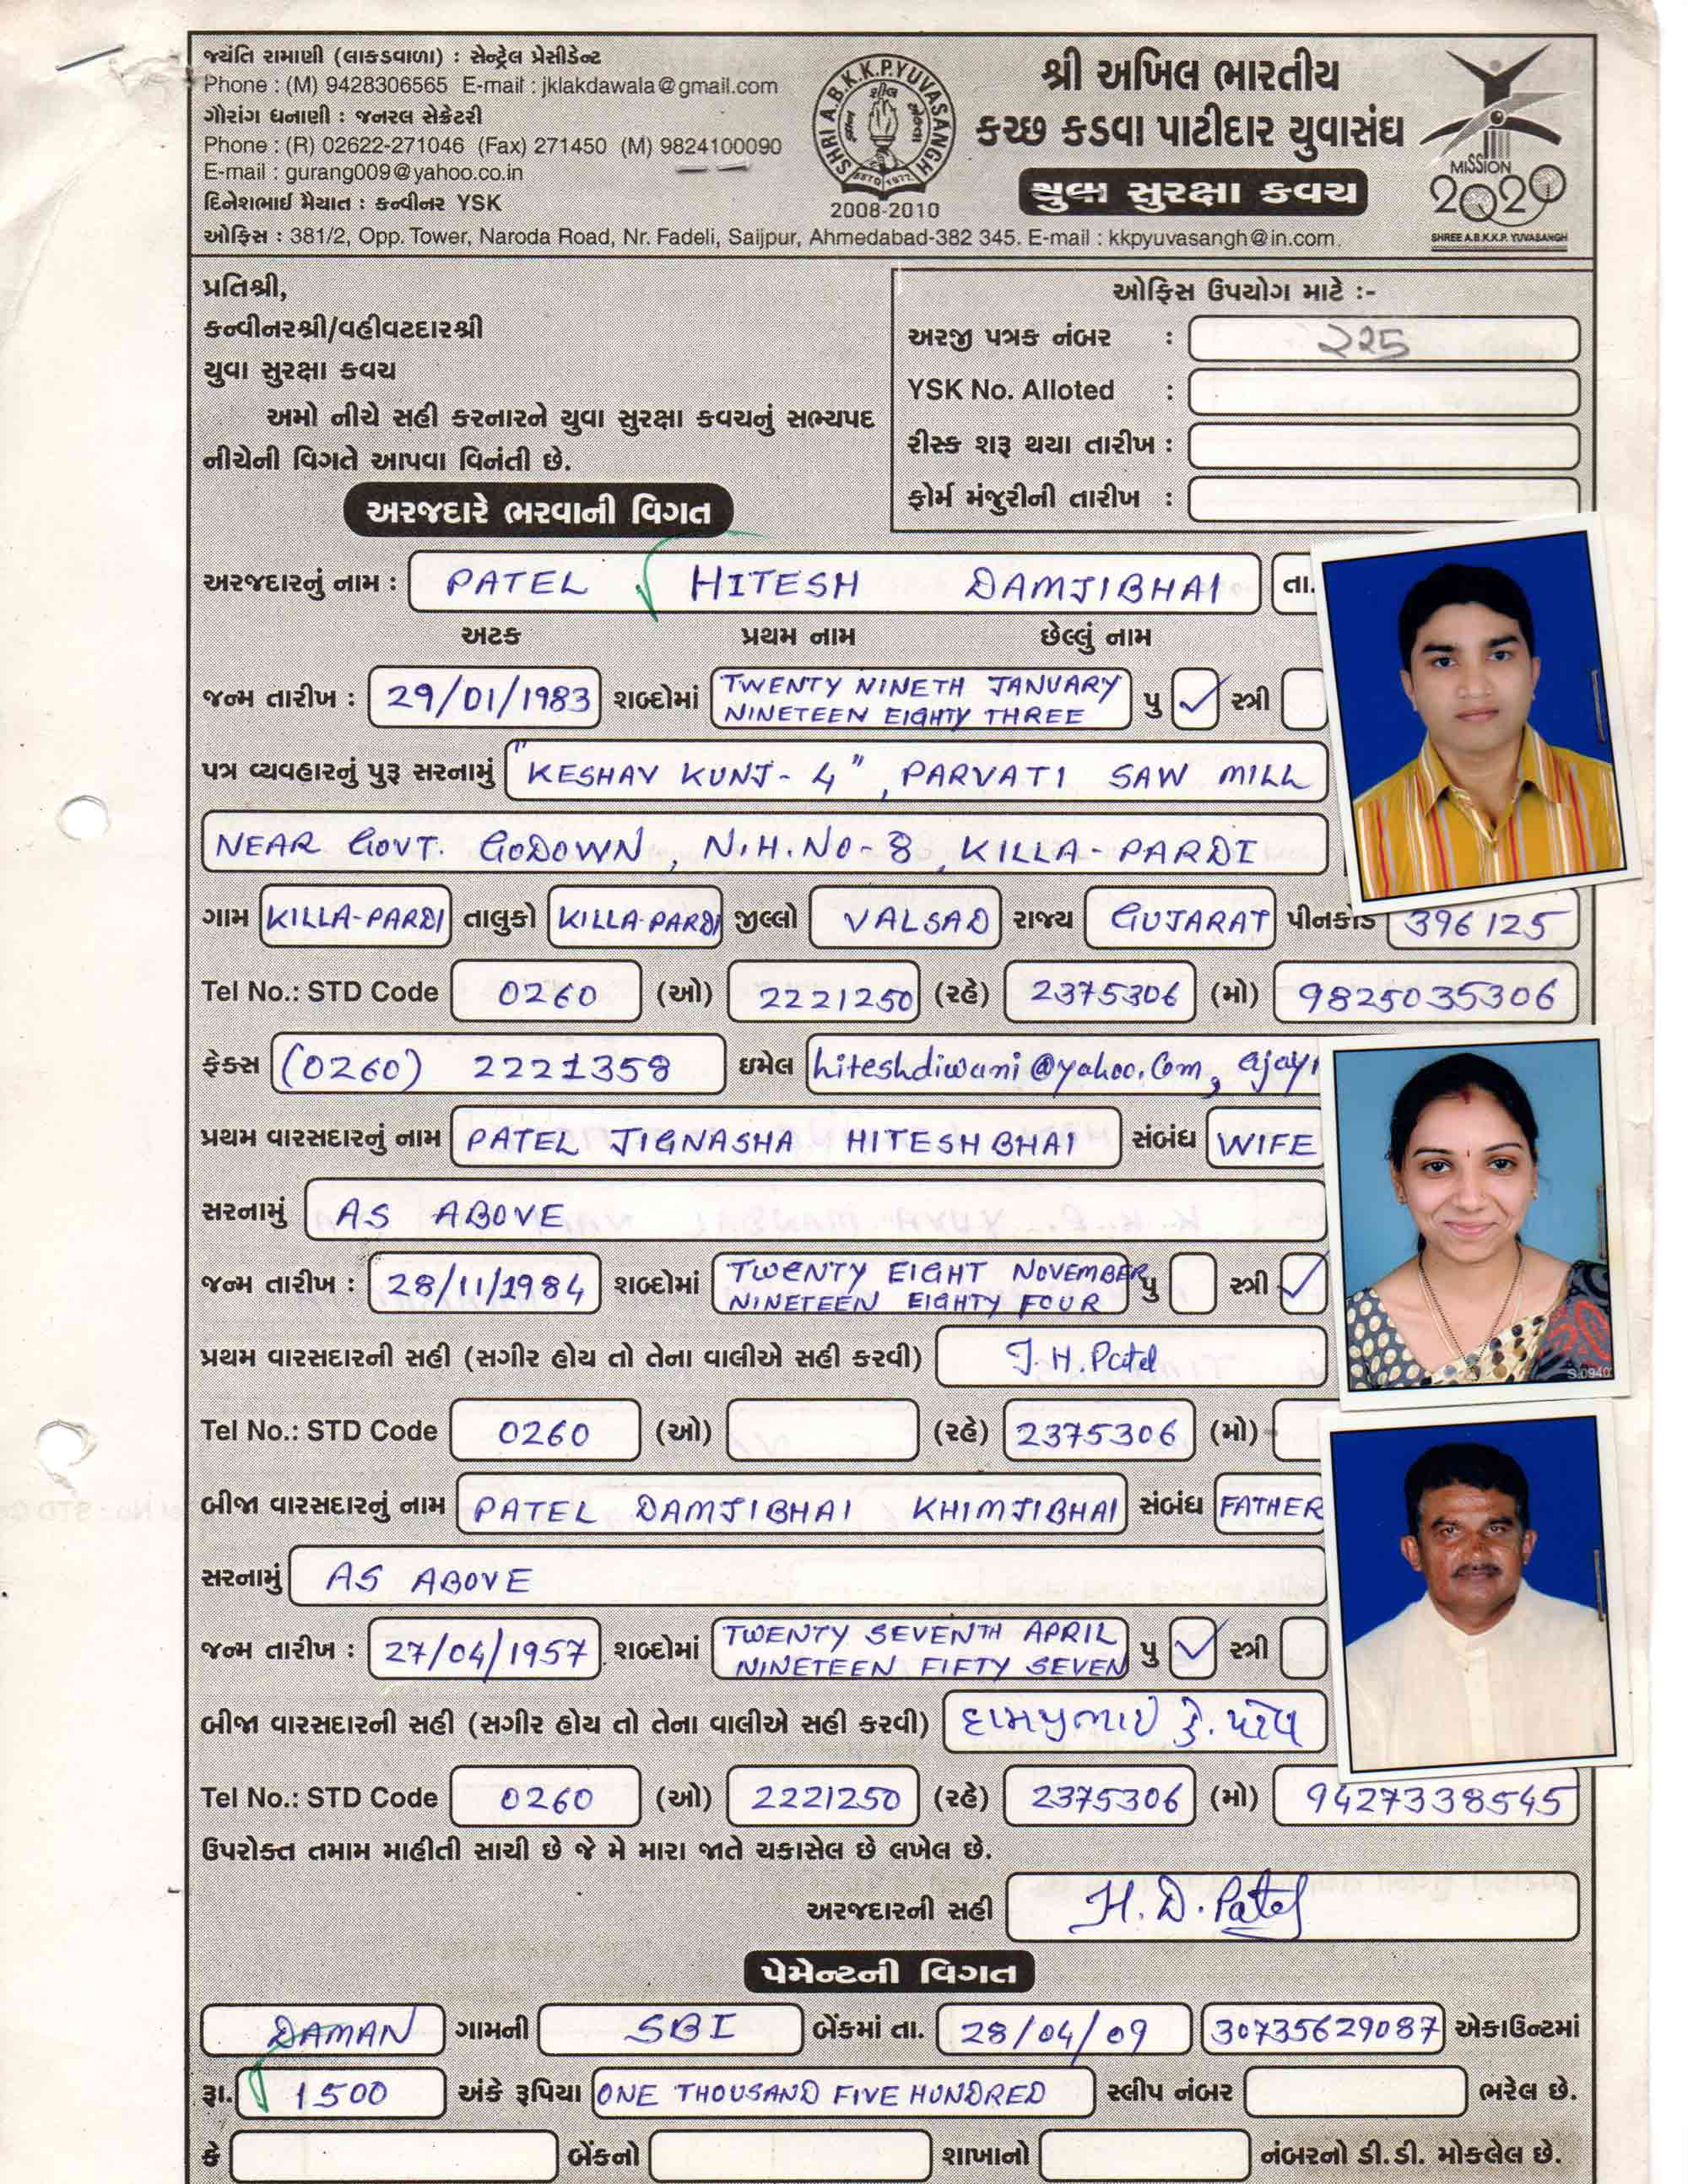 જયંતિ રામાણી (લાકડવાળા) : સેન્ટ્રેલ પ્રેસીડેન્ટ
Phone : (M) 9428306565 E-mail : jklakdawala@gmail.com
ગૌરાંગ ધનાણી : જનરલ સેક્રેટરી
Phone : (R) 02622-271046 (Fax) 271450 (M) 9824100090
E-mail : gurang009@yahoo.co.in
દિનેશભાઈ મૈયાત : કન્વીનર YSK
SHRI A.B.K.K.P.YUVASANGH
ESTD 1977
2008-2010
શ્રી અખિલ ભારતીય
કચ્છ કડવા પાટીદાર યુવાસંઘ
યુવા સુરક્ષા કવચ
MISSION
2020
SHREE A.B.K.K.P. YUVASANGH
ઓફિસ : 381/2, Opp. Tower, Naroda Road, Nr. Fadeli, Saijpur, Ahmedabad-382 345. E-mail : kkpyuvasangh@in.com.
પ્રતિશ્રી,
કન્વીનરશ્રી/વહીવટદારશ્રી
યુવા સુરક્ષા કવચ
અમો નીચે સહી કરનારને યુવા સુરક્ષા કવચનું સભ્યપદ
નીચેની વિગતે આપવા વિનંતી છે.
ઓફિસ ઉપયોગ માટે :-
અરજી પત્રક નંબર : 225
YSK No. Alloted :
રીસ્ક શરૂ થયા તારીખ :
ફોર્મ મંજુરીની તારીખ :
અરજદારે ભરવાની વિગત
અરજદારનું નામ : PATEL HITESH DAMJIBHAI તા.
અટક પ્રથમ નામ છેલ્લું નામ
જન્મ તારીખ : 29/01/1983 શબ્દોમાં TWENTY NINETH JANUARY NINETEEN EIGHTY THREE પુ ✓ સ્ત્રી
પત્ર વ્યવહારનું પુરૂ સરનામું "KESHAV KUNJ - 4", PARVATI SAW MILL
NEAR GOVT. GODOWN, N.H.NO-8, KILLA-PARDI
ગામ KILLA-PARDI તાલુકો KILLA-PARDI જીલ્લો VALSAD રાજ્ય GUJARAT પીનકોડ 396125
Tel No.: STD Code 0260 (ઓ) 2221250 (રહે) 2375306 (મો) 9825035306
ફેક્સ (0260) 2221358 ઇમેલ hiteshdiwani@yahoo.Com, ajay
પ્રથમ વારસદારનું નામ PATEL JIGNASHA HITESHBHAI સંબંધ WIFE
સરનામું AS ABOVE
જન્મ તારીખ : 28/11/1984 શબ્દોમાં TWENTY EIGHT NOVEMBER NINETEEN EIGHTY FOUR પુ સ્ત્રી ✓
પ્રથમ વારસદારની સહી (સગીર હોય તો તેના વાલીએ સહી કરવી) J.H.Patel
S.0940
Tel No.: STD Code 0260 (ઓ) (રહે) 2375306 (મો)
બીજા વારસદારનું નામ PATEL DAMJIBHAI KHIMJIBHAI સંબંધ FATHER
સરનામું AS ABOVE
જન્મ તારીખ : 27/04/1957 શબ્દોમાં TWENTY SEVENTH APRIL NINETEEN FIFTY SEVEN પુ ✓ સ્ત્રી
બીજા વારસદારની સહી (સગીર હોય તો તેના વાલીએ સહી કરવી) દામજીભાઈ કે. પટેલ
Tel No.: STD Code 0260 (ઓ) 2221250 (રહે) 2375306 (મો) 9427338545
ઉપરોક્ત તમામ માહીતી સાચી છે જે મે મારા જાતે ચકાસેલ છે લખેલ છે.
અરજદારની સહી H.D.Patel
પેમેન્ટની વિગત
DAMAN ગામની SBI બેંકમાં તા. 28/04/09 30735629087 એકાઉન્ટમાં
રૂા. 1500 અંકે રૂપિયા ONE THOUSAND FIVE HUNDRED સ્લીપ નંબર ભરેલ છે.
કે બેંકનો શાખાનો નંબરનો ડી.ડી. મોકલેલ છે.